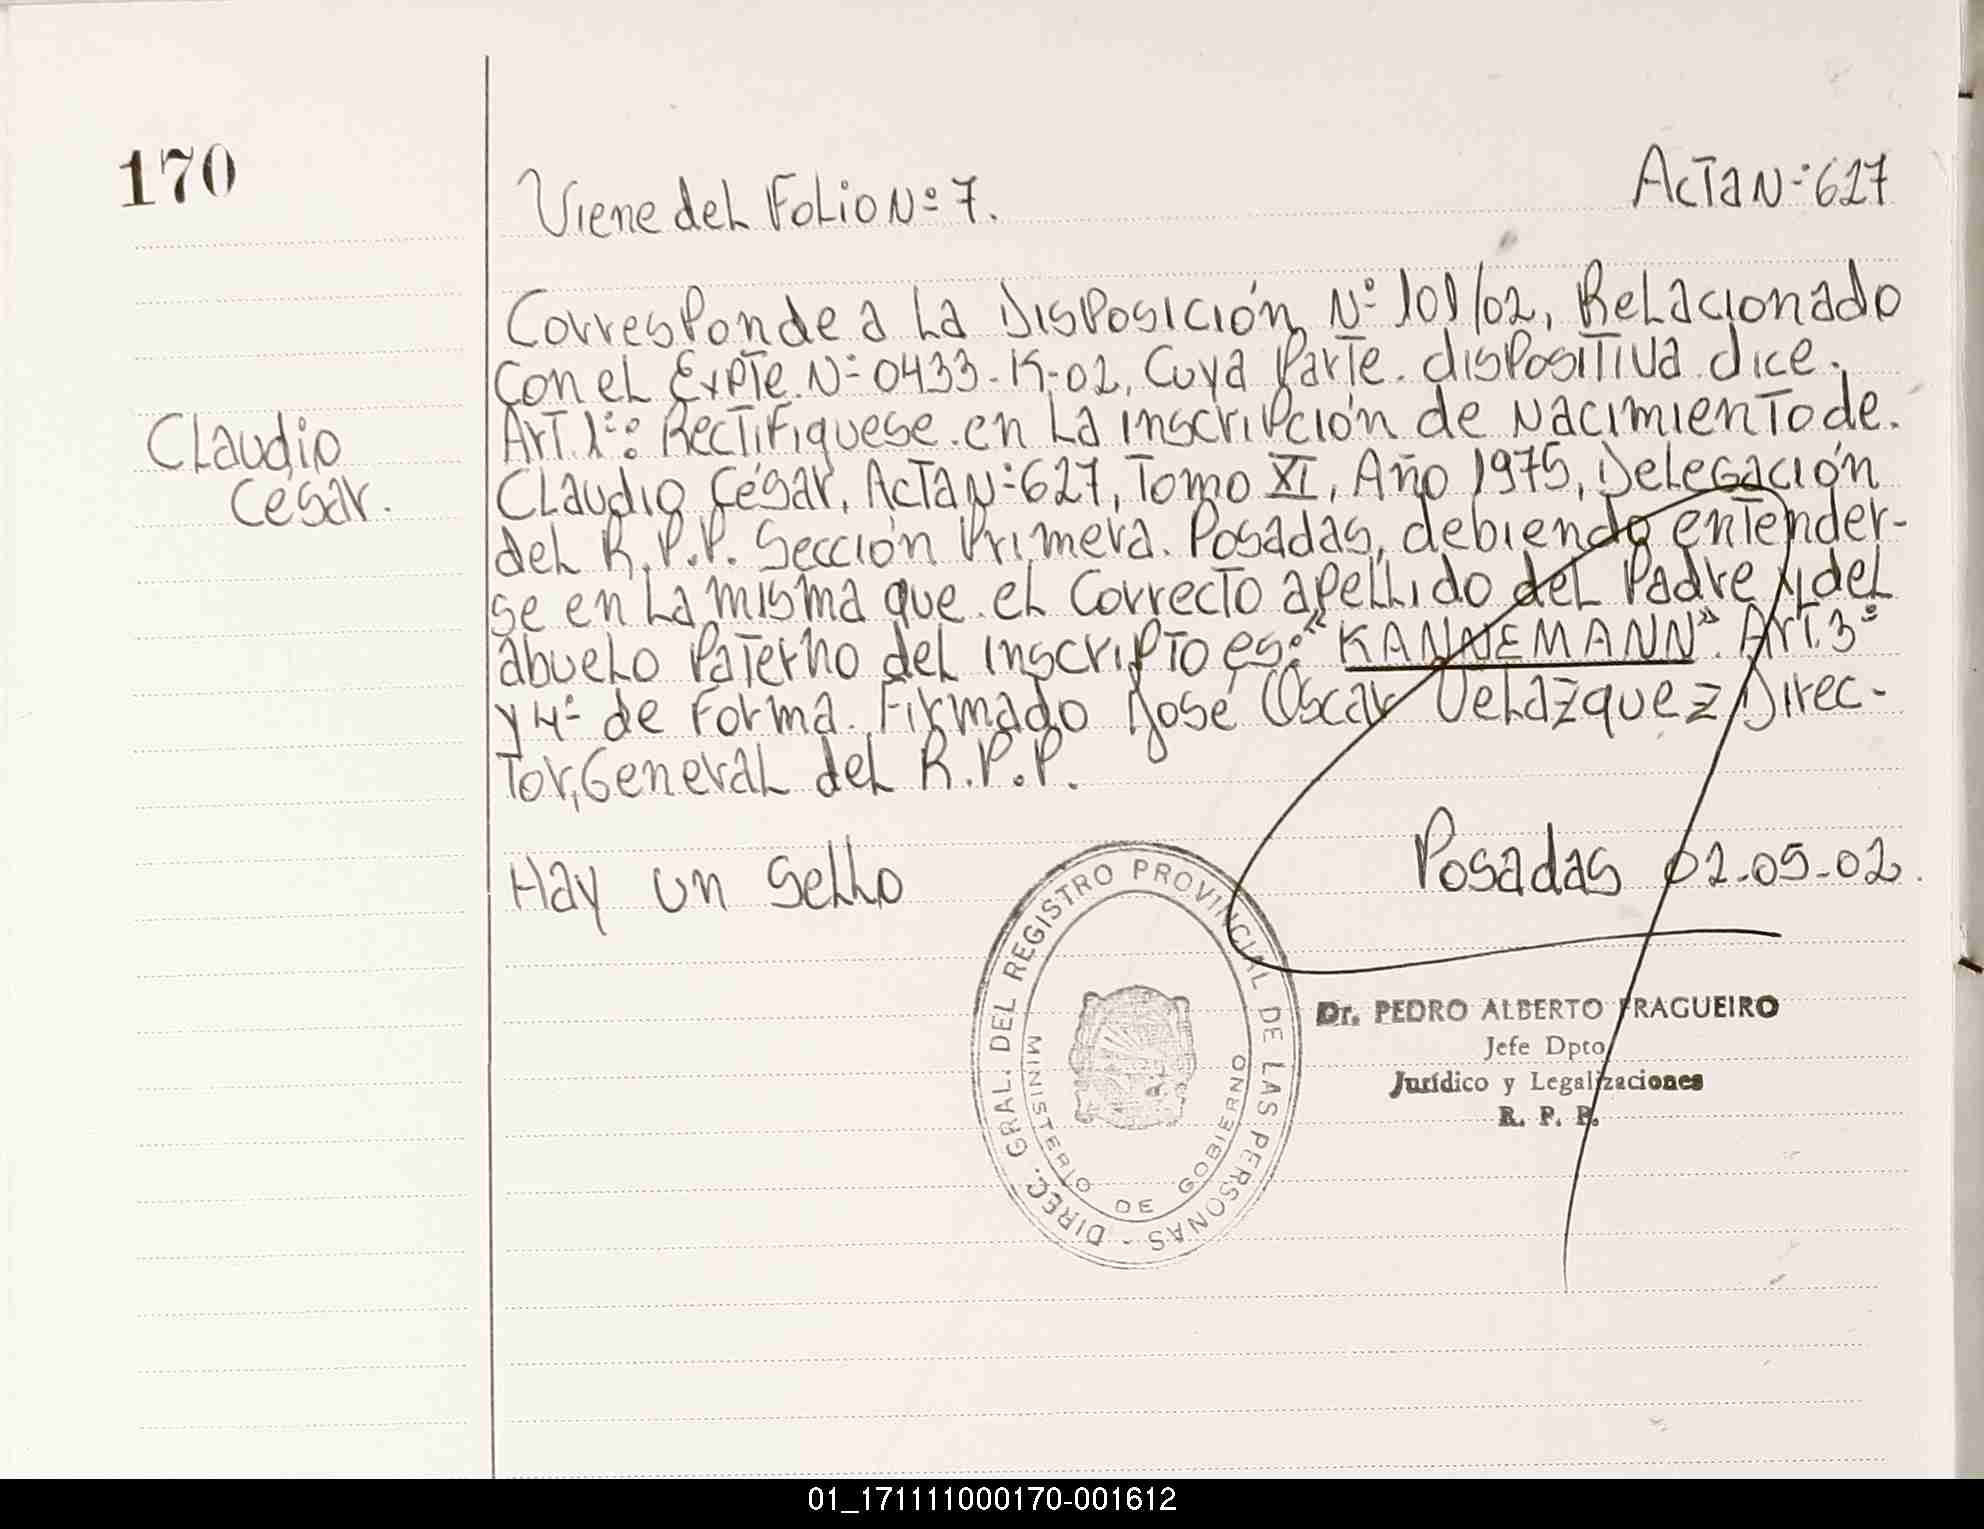 170
Viene del Folio Nº 7.
Acta Nº 627
Corresponde a la Disposición Nº 101/02, Relacionado
con el Expte. Nº 0433-K-02, Cuya Parte. dispositiva dice.
Art. 1º: Rectifiquese en la inscripción de Nacimiento de.
Claudio César.
Claudio César, Acta Nº 627, Tomo XI, Año 1975, Delegación
del R.P.P. Sección Primera. Posadas, debiendo entender-
se en la misma que el Correcto apellido del Padre y del
abuelo Paterno del inscripto es: "KANNEMANN". Art. 3º
y 4º de Forma. Firmado José Oscar Velazquez Direc-
tor, General del R.P.P.
Hay un Sello
Posadas 02-05-02.
DIREC. GRAL. DEL REGISTRO PROVINCIAL DE LAS PERSONAS -
MINISTERIO DE GOBIERNO
Dr. PEDRO ALBERTO FRAGUEIRO
Jefe Dpto
Jurídico y Legalizaciones
R. P. P.
01_171111000170-001612